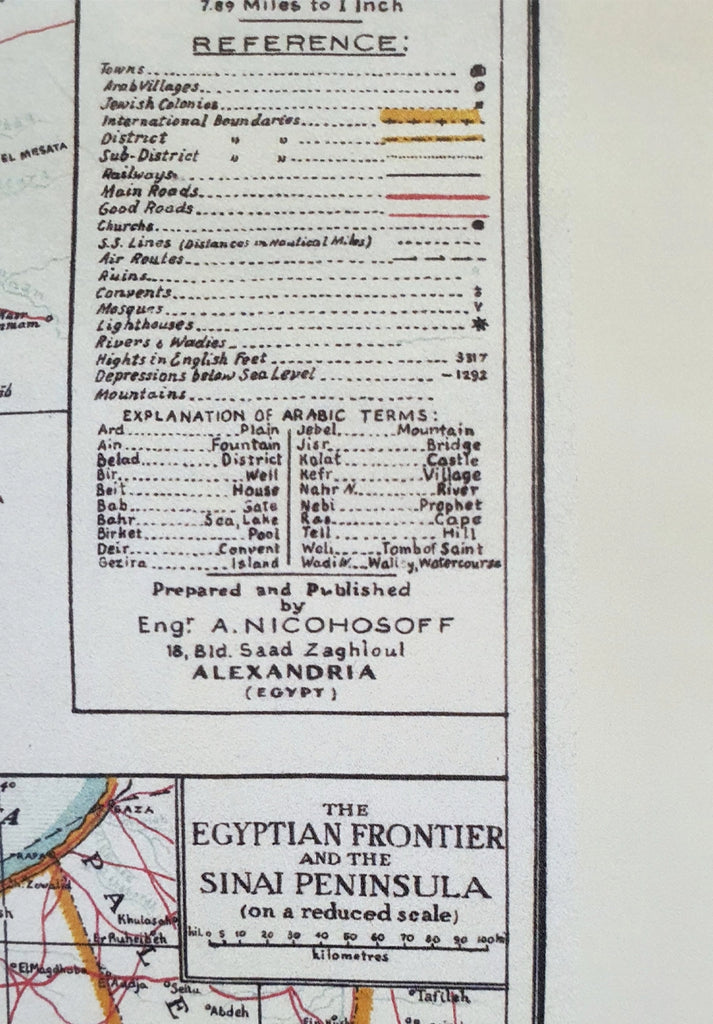 7.89 Miles to 1 Inch
REFERENCE:
Towns
Arab Villages
Jewish Colonies
International Boundaries
District " "
Sub-District " "
Railways
Main Roads
Good Roads
Churchs
S.S. Lines (Distances in Nautical Miles)
Air Routes
Ruins
Convents
Mosques
Lighthouses
Rivers & Wadies
Hights in English Feet 3317
Depressions below Sea Level -1292
Mountains
EL MESATA
EXPLANATION OF ARABIC TERMS:
Ard Plain
Ain Fountain
Belad District
Bir Well
Beit House
Bab Gate
Bahr Sea, Lake
Birket Pool
Deir Convent
Gezira Island
Jebel Mountain
Jisr Bridge
Kalat Castle
Kefr Village
Nahr N. River
Nebi Prophet
Ras Cape
Tell Hill
Weli Tomb of Saint
Wadi W. Valley, Watercourse
Prepared and Published
by
Engr. A. NICOHOSOFF
18, Bld. Saad Zaghloul
ALEXANDRIA
(EGYPT)
THE
EGYPTIAN FRONTIER
AND THE
SINAI PENINSULA
(on a reduced scale)
0 5 10 20 30 40 50 60 70 80 90 100
kilometres
GAZA
RAFA
PALE
Khulasah
Er Ruheibeh
Abdeh
Tafileh